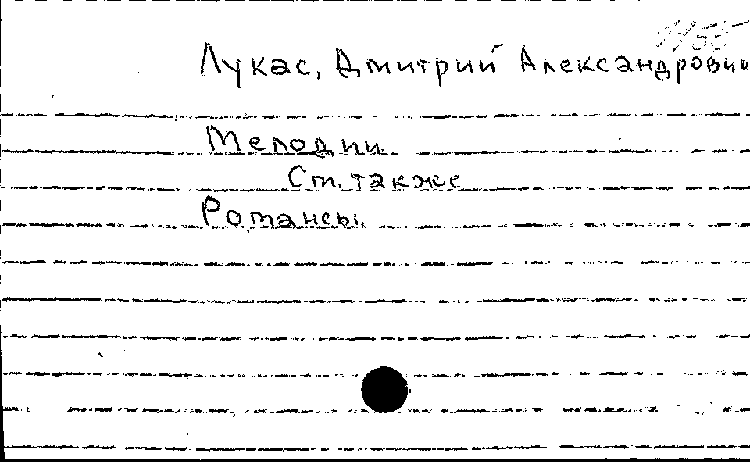 Лукас, Дмитрий Александрови
Мелодии
См. также
Романсы